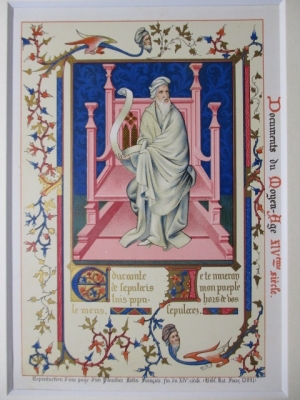 Documents du Moyen-Age XIVme siècle.
Educam te
de sepulcris
tuis popu
le meus.
Je te metteray
mon pueple
hors de vos
sepulcres.
Reproduction d'une page d'un Psautier Latin-Français fin du XIVe siècle (Bibl. Nat. Paris 13091)